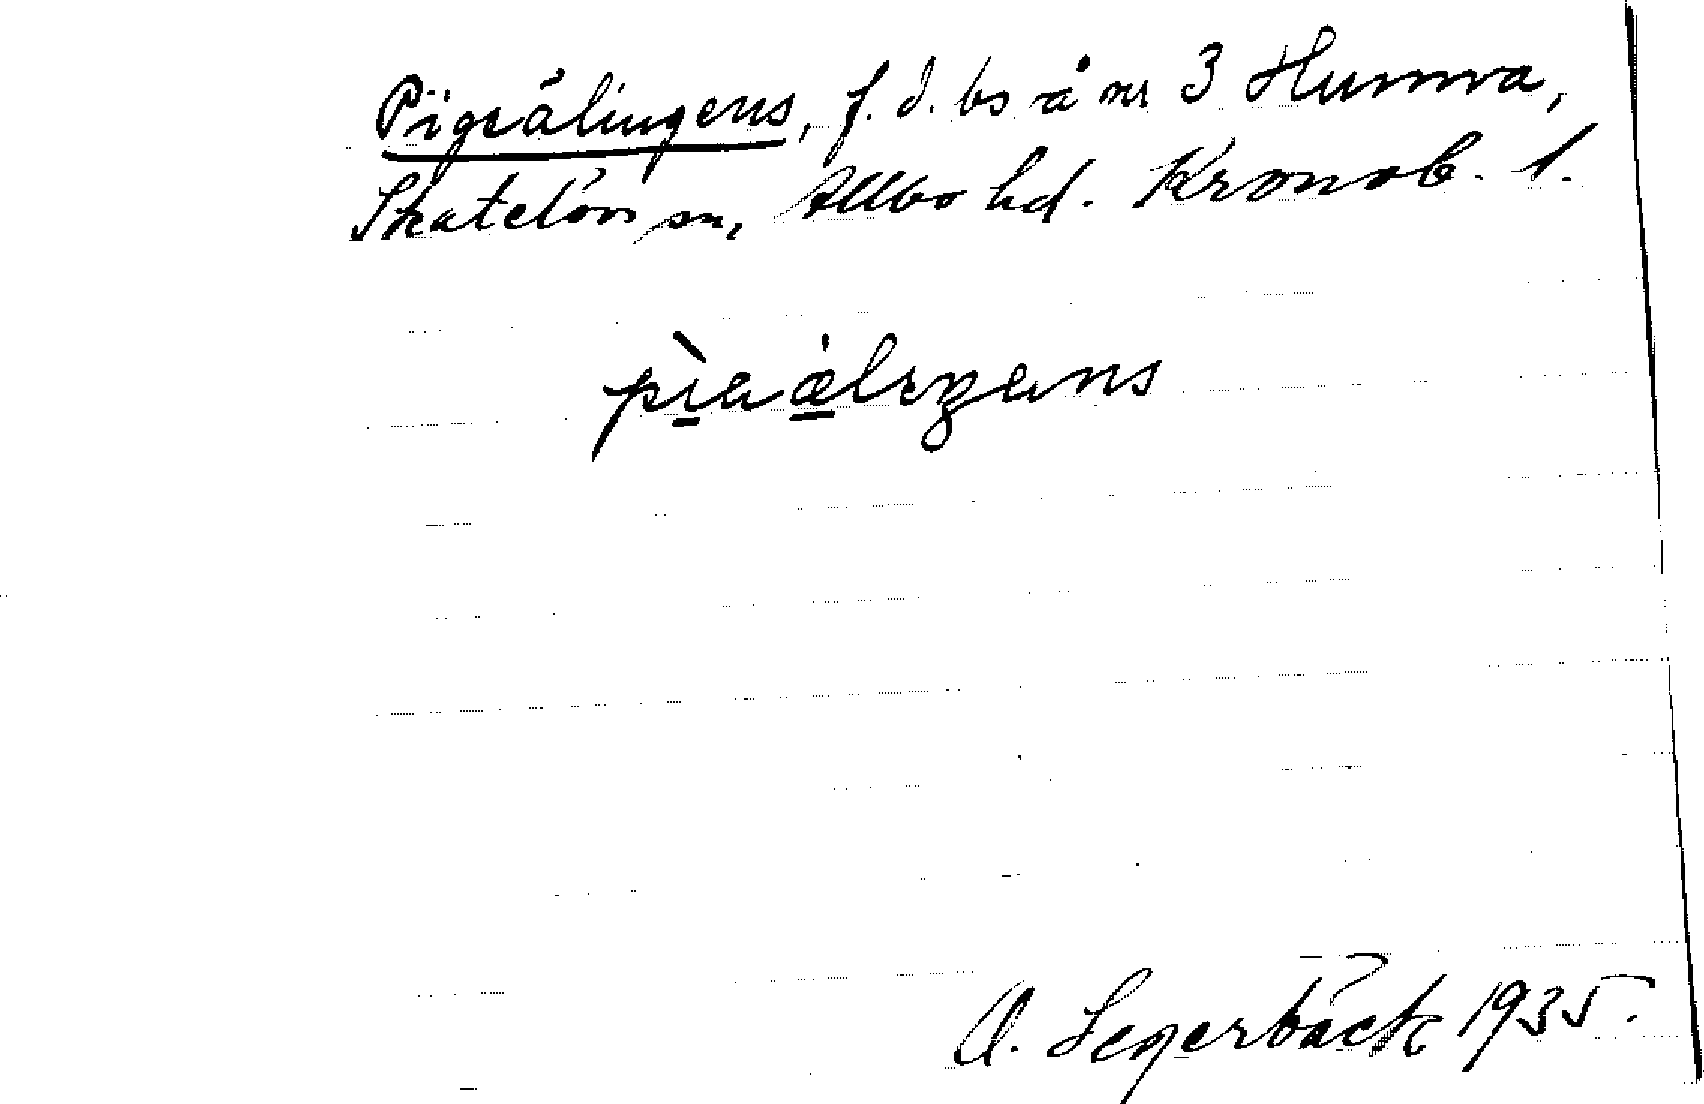 Pigeälingens, f.d. bs å nr 3 Humra,
Skatelövs sn, Allbo hd. Kronob. l.
A. Segerbäck 1935.